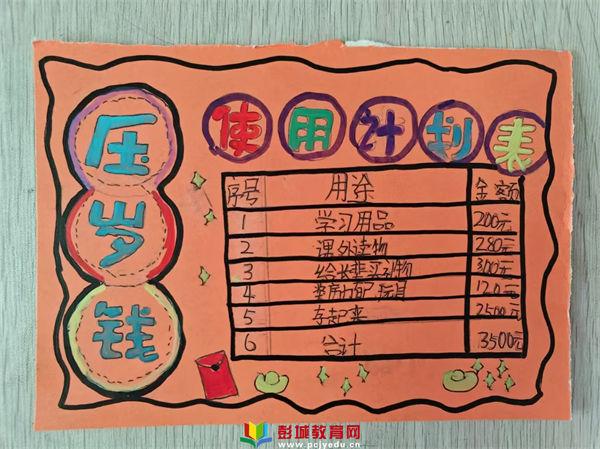 压岁钱
使用计划表
序号 用途 金额
1 学习用品 200元
2 课外读物 280元
3 给长辈买礼物 300元
4 玩具 120元
5 存起来 2500元
6 合计 3500元
彭城教育网
www.pcjyedu.cn